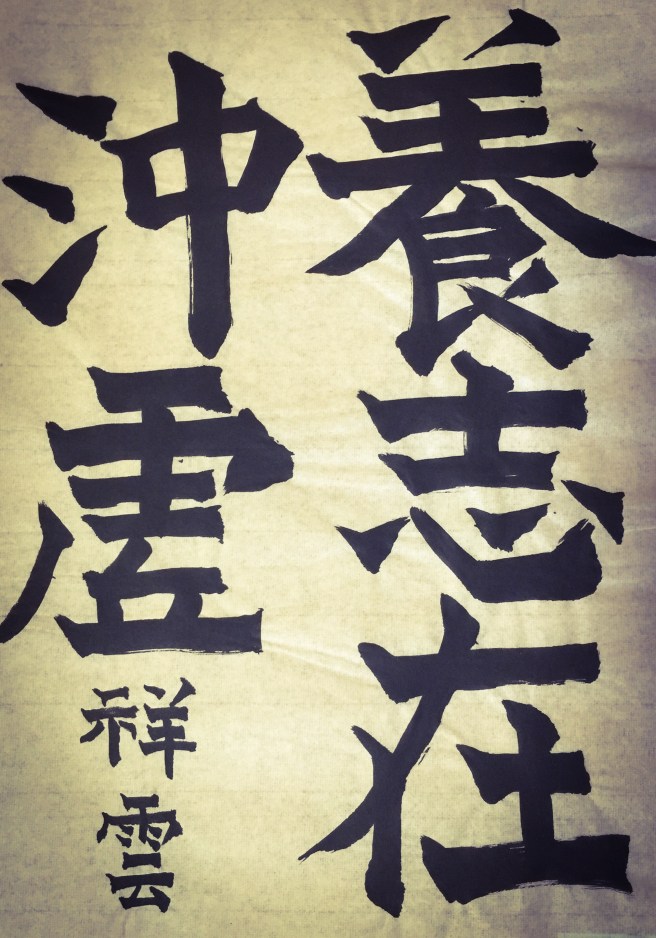 養志在
沖虛
祥雲